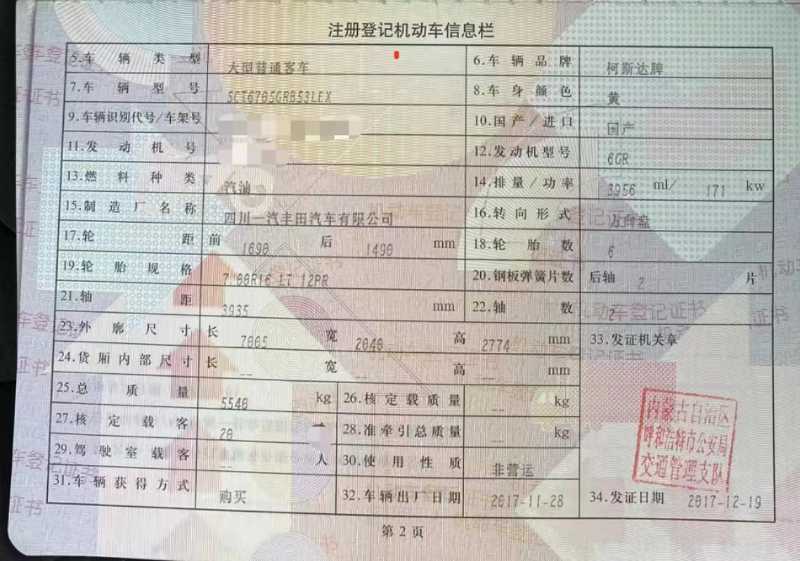 注册登记机动车信息栏
5.车辆类型 大型普通客车 6.车辆品牌 柯斯达牌
7.车辆型号 SCT6705GRB53LEX 8.车身颜色 黄
9.车辆识别代号/车架号 10.国产/进口 国产
11.发动机号 12.发动机型号 6GR
13.燃料种类 汽油 14.排量/功率 3956 ml/ 171 kw
15.制造厂名称 四川一汽丰田汽车有限公司 16.转向形式 方向盘
17.轮距 前 1690 后 1490 mm 18.轮胎数 6
19.轮胎规格 7.00R16 LT 12PR 20.钢板弹簧片数 后轴 2 片
21.轴距 3935 mm 22.轴数 2
23.外廓尺寸 长 7005 宽 2040 高 2774 mm 33.发证机关章
24.货厢内部尺寸 长 -- 宽 -- 高 -- mm
25.总质量 5540 kg 26.核定载质量 -- kg
27.核定载客 20 人 28.准牵引总质量 -- kg
内蒙古自治区
呼和浩特市公安局
交通管理支队
29.驾驶室载客 -- 人 30.使用性质 非营运
31.车辆获得方式 购买 32.车辆出厂日期 2017-11-28 34.发证日期 2017-12-19
第2页